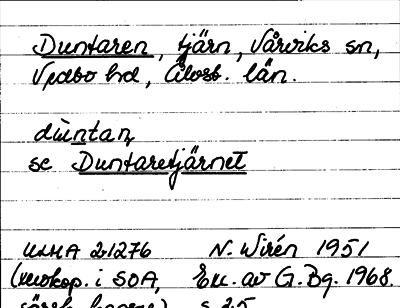 Duntaren, tjärn, Vårviks sn,
Vedbo hd, Älvsb. län.
dùntaṇ
se Duntaretjärnet
ULMA 21276 N. Wirén 1951
(xerokop. i SOA, Exc. av G. Bg. 1968.
särsk. kapsel) s. 25